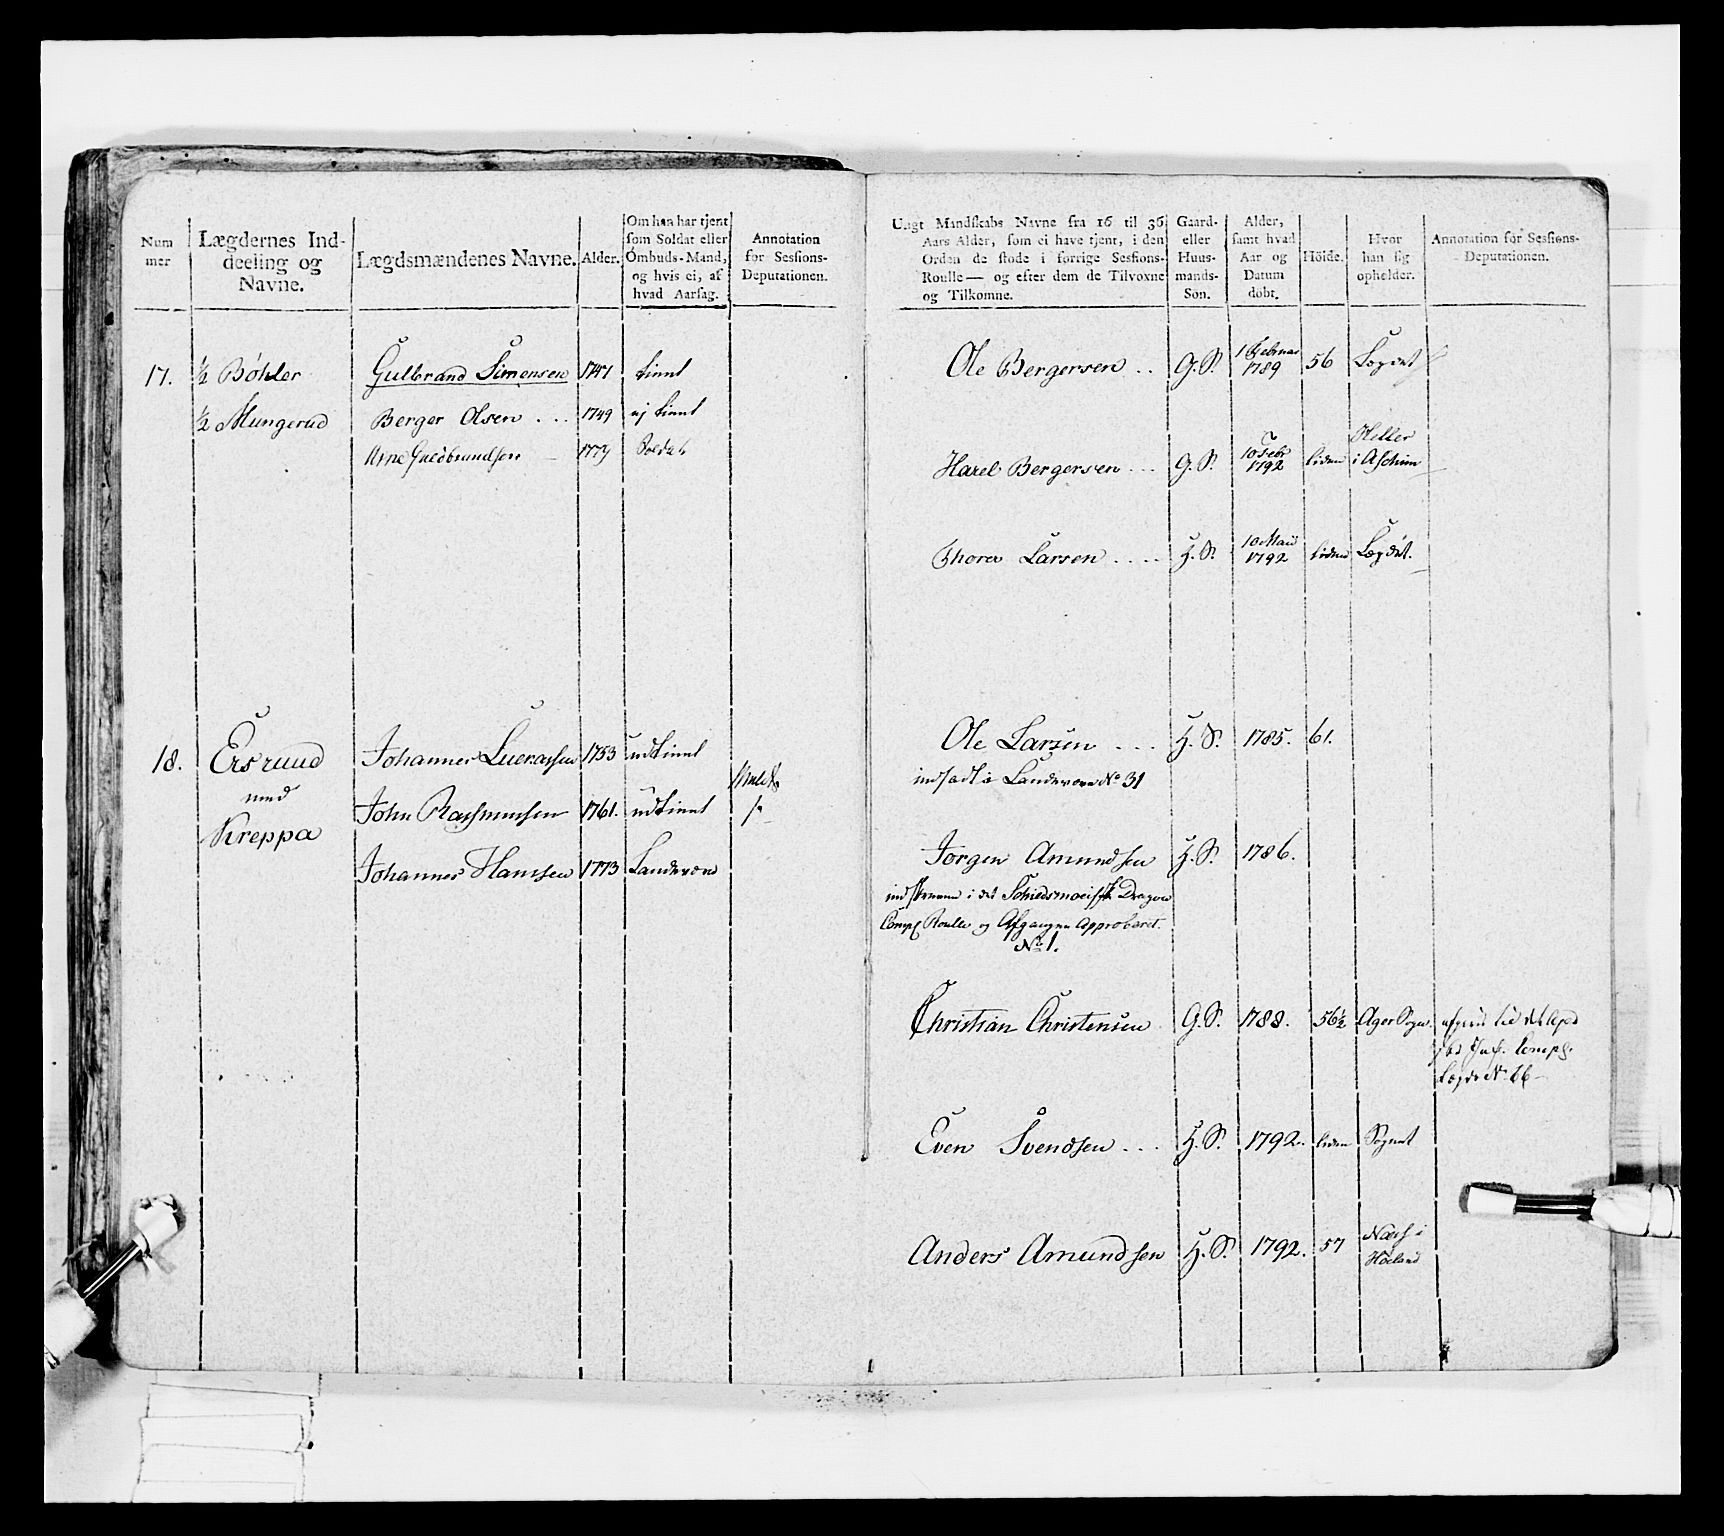 Num
mer
Lægdernes Ind-
deeling og
Navne.
Lægdsmændenes Navne.
Alder.
Om han har tjent
som Soldat eller
Ombuds-Mand,
og hvis ei, af
hvad Aarsag.
Annotation
for Sessions-
Deputationen.
17.
½ Böhler
Gulbrand Simensen
1741
tient
½ Mungerud
Berger Olsen . . .
1749
ej tient
Arne Guldbrandsen
Soldat
18.
Ersrud
med
Kreppa
Johannes
1753
udtient
John Rasmussen
1761.
udtient
Johannes Hansen
1773
Landeværn
Ungt Mandskabs Navne fra 16 til 36
Aars Alder, som ei have tjent, i den
Orden de stode i forrige Sessions-
Roulle— og efter dem de Tilvoxne
og Tilkomne.
Gaard-
eller
Huus-
mands-
Søn.
Alder,
samt hvad
Aar og
Datum
døbt.
Höide.
Hvor
han sig
opholder.
Annotation for Sessions-
Deputationen.
Ole Bergersen . .
G. S.
1 Februar
1789
56
Lægdet
Harel Bergersen . . .
G. S.
10 Febr
1792
liden
i Aschim
Thorer Larsen . . . .
H. S.
10 Maii
1792
liden
Lægdet.
Ole Larsen . . .
H. S.
1785.
61.
indsadt i Landeværn No 31
Jörgen Amundsen
H. S.
1786.
i det Dragon
Comp: Roulle og Afgangen Approberet.
No 1.
Christian Christensen
G. S.
1788.
56½
Ager Sogn.
til det
Inf. Comp:
Lægde No 66
Even Svendsen . . .
H. S.
1792.
liden
Sognet
Anders Amundsen
H. S.
1792.
57
Næss i
Höland